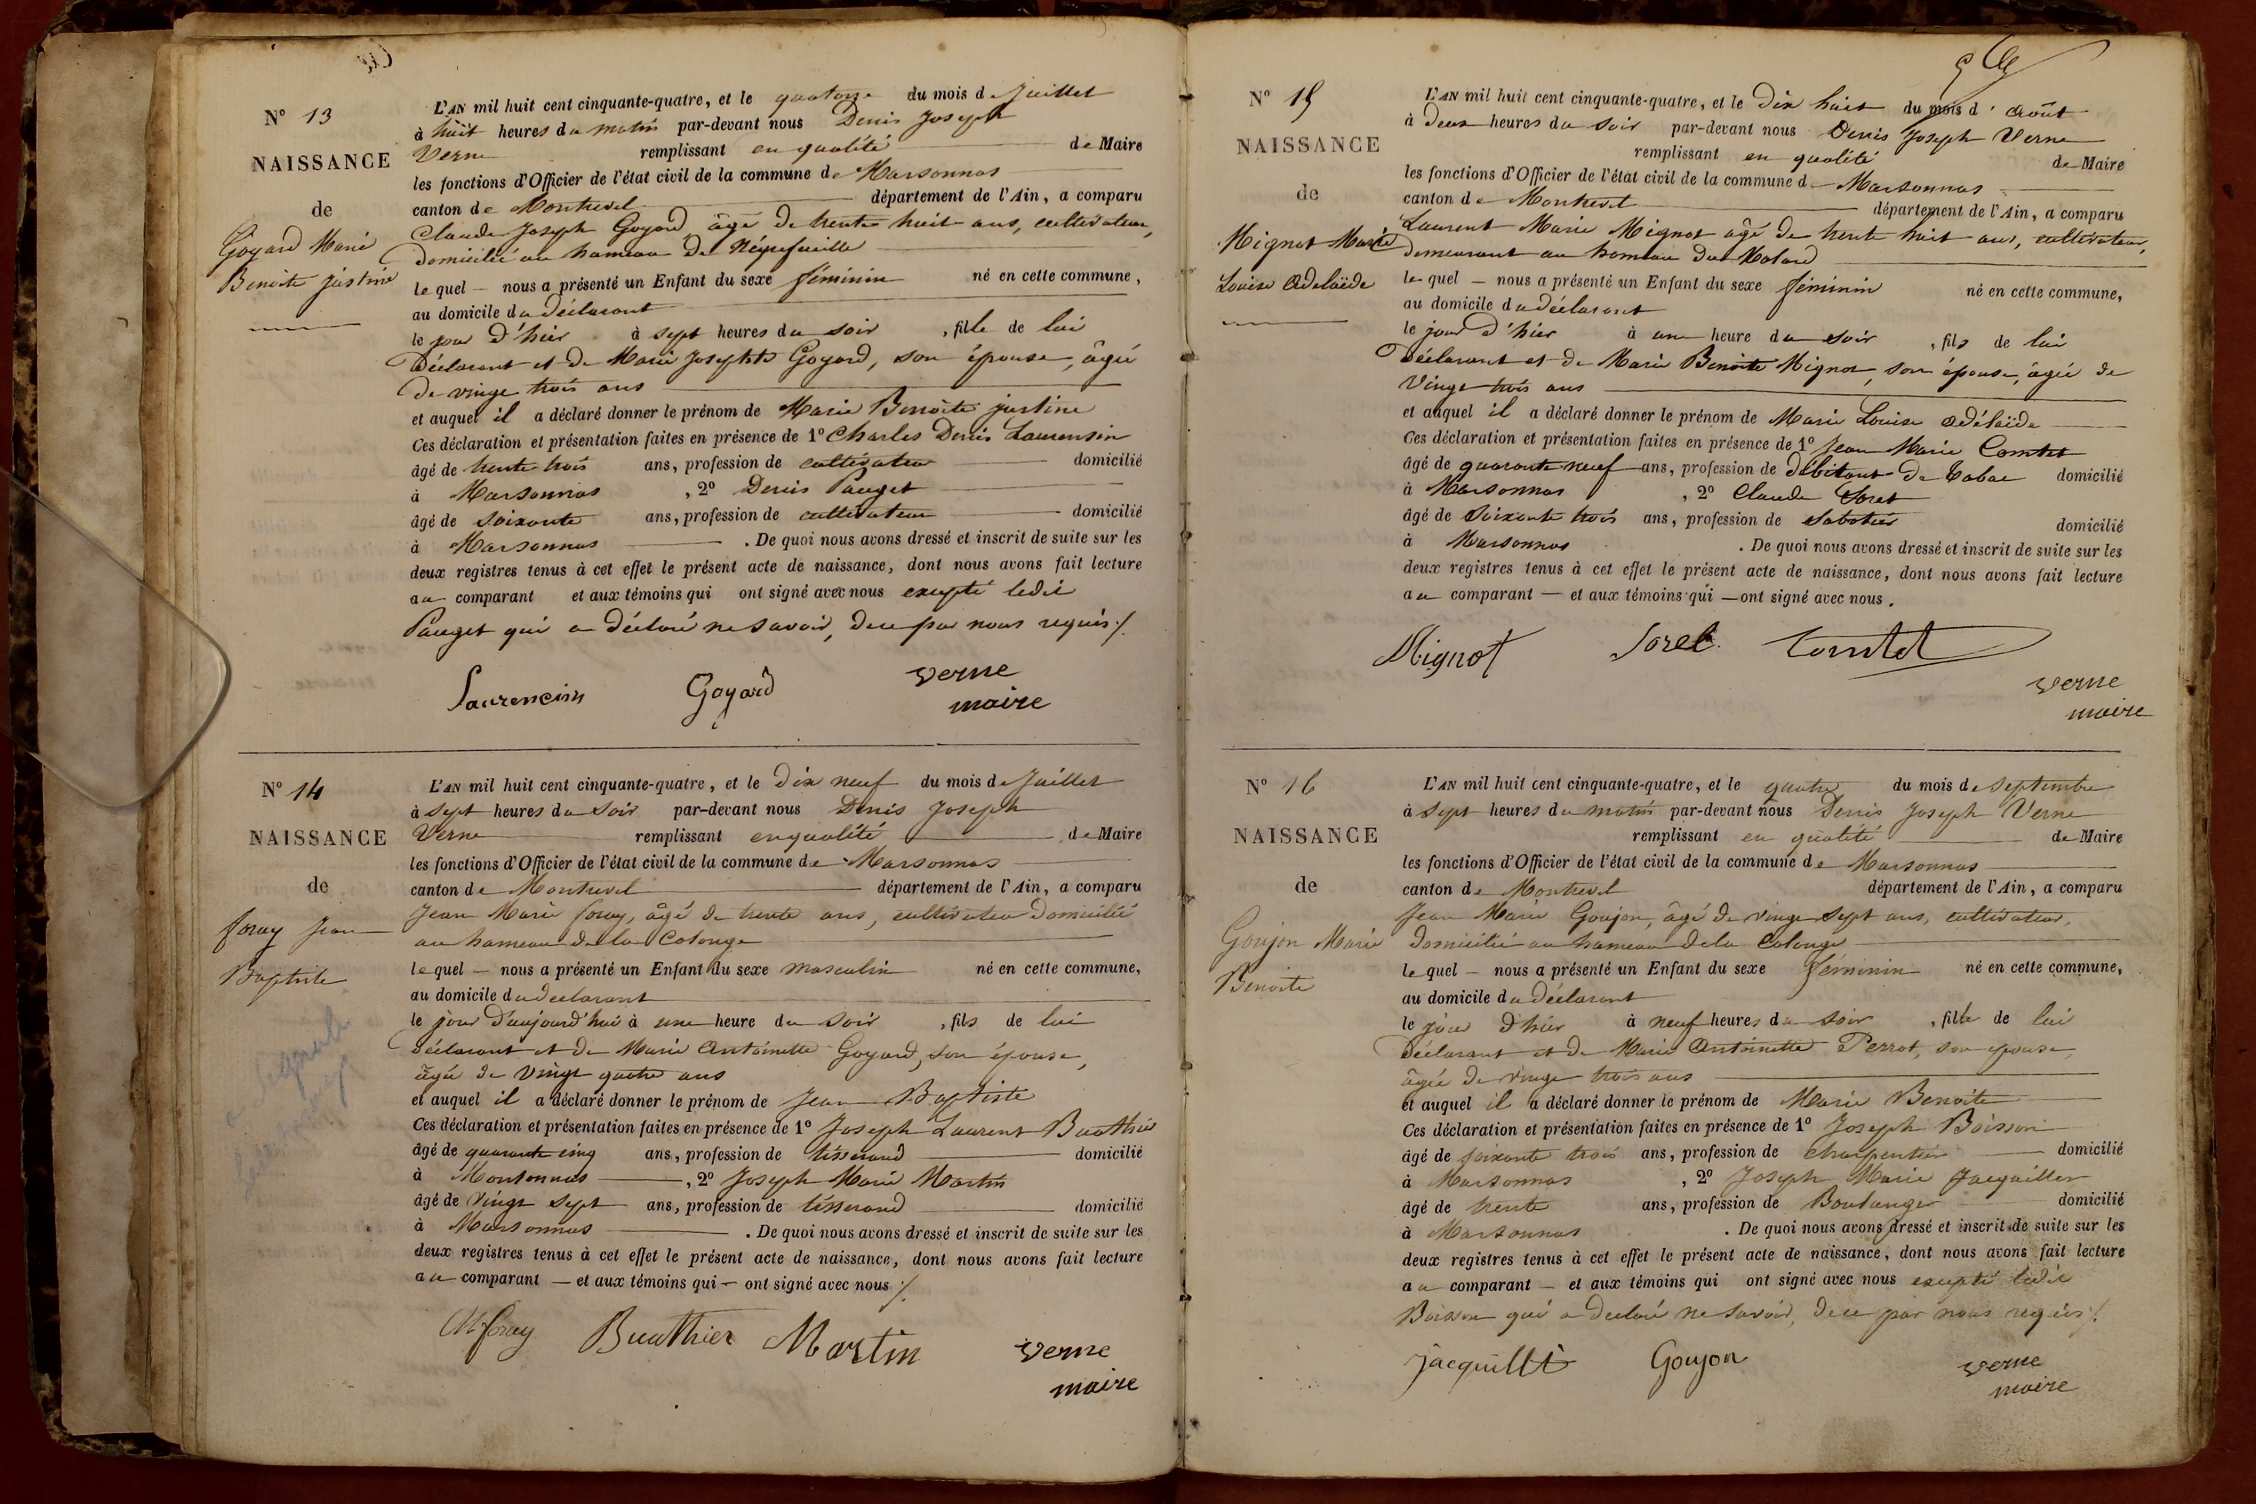 N° 13
NAISSANCE
de
Goyard Marie
Benoite justine
L'AN mil huit cent cinquante-quatre, et le quatorze du mois de Juillet
à huit heures du matin par-devant nous Denis Joseph
Verne remplissant en qualité de Maire
les fonctions d'Officier de l'état civil de la commune de Marsonnas
canton de Montrevel département de l'Ain, a comparu
Claude Joseph Goyard, âgé de trente huit ans, cultivateur,
domicilié au hameau de
le quel — nous a présenté un Enfant du sexe féminin né en cette commune,
au domicile du déclarant
le jour d'hier à sept heures du soir, fille de lui
déclarant et de Marie Josephte Goyard, son épouse, âgée
de vingt trois ans
et auquel il a déclaré donner le prénom de Marie Benoite justine
Ces déclaration et présentation faites en présence de 1° Charles Denis Laurensin
âgé de trente trois ans, profession de cultivateur domicilié
à Marsonnas, 2° Denis Pauget
âgé de soixante ans, profession de cultivateur domicilié
à Marsonnas. De quoi nous avons dressé et inscrit de suite sur les
deux registres tenus à cet effet le présent acte de naissance, dont nous avons fait lecture
au comparant et aux témoins qui ont signé avec nous excepté ledit
Pauget qui a déclaré ne savoir, de ce par nous requis ./.
Laurencin Goyard Verne
maire
N° 14
NAISSANCE
de
foray Jean
Baptiste
L'AN mil huit cent cinquante-quatre, et le dix neuf du mois de Juillet
à sept heures du soir par-devant nous Denis Joseph
Verne remplissant en qualité de Maire
les fonctions d'Officier de l'état civil de la commune de Marsonnas
canton de Montrevel département de l'Ain, a comparu
Jean Marie foray, âgé de trente ans, cultivateur domicilié
au hameau de la Colonge
le quel — nous a présenté un Enfant du sexe masculin né en cette commune,
au domicile du déclarant
le jour d'aujourd'hui à une heure du soir, fils de lui
déclarant et de Marie Antoinette Goyard, son épouse,
âgée de vingt quatre ans
et auquel il a déclaré donner le prénom de Jean Baptiste
Ces déclaration et présentation faites en présence de 1° Joseph Laurent Buathier
âgé de quarante cinq ans, profession de tisserand domicilié
à Marsonnas, 2° Joseph Marie Martin
âgé de vingt sept ans, profession de tisserand domicilié
à Marsonnas. De quoi nous avons dressé et inscrit de suite sur les
deux registres tenus à cet effet le présent acte de naissance, dont nous avons fait lecture
au comparant — et aux témoins qui — ont signé avec nous ./.
foray Buathier Martin Verne
maire
N° 15
NAISSANCE
de
Mignot Marie
Louise Adelaïde
L'AN mil huit cent cinquante-quatre, et le dix huit du mois d'Août
à deux heures du soir par-devant nous Denis Joseph Verne
remplissant en qualité de Maire
les fonctions d'Officier de l'état civil de la commune de Marsonnas
canton de Montrevel département de l'Ain, a comparu
Laurent Marie Mignot âgé de trente huit ans, cultivateur,
demeurant au hameau du Molard
le quel — nous a présenté un Enfant du sexe féminin né en cette commune,
au domicile du déclarant
le jour d'hier à une heure du soir, fils de lui
déclarant et de Marie Benoite Mignot, son épouse, âgée de
vingt trois ans
et auquel il a déclaré donner le prénom de Marie Louise Adélaïde
Ces déclaration et présentation faites en présence de 1° Jean Marie Comtet
âgé de quarante neuf ans, profession de débitant de Tabac domicilié
à Marsonnas, 2° Claude Soret
âgé de soixante trois ans, profession de sabotier domicilié
à Marsonnas. De quoi nous avons dressé et inscrit de suite sur les
deux registres tenus à cet effet le présent acte de naissance, dont nous avons fait lecture
au comparant — et aux témoins qui — ont signé avec nous.
Mignot Soret Comtet
Verne
maire
N° 16
NAISSANCE
de
Goujon Marie
Benoite
L'AN mil huit cent cinquante-quatre, et le quatre du mois de septembre
à sept heures du matin par-devant nous Denis Joseph Verne
remplissant en qualité de Maire
les fonctions d'Officier de l'état civil de la commune de Marsonnas
canton de Montrevel département de l'Ain, a comparu
Jean Marie Goujon, âgé de vingt sept ans, cultivateur,
domicilié au hameau de la Colonge
le quel — nous a présenté un Enfant du sexe féminin né en cette commune,
au domicile du déclarant
le jour d'hier à neuf heures du soir, fille de lui
déclarant et de Marie Antoinette Perrot, son épouse,
âgée de vingt trois ans
et auquel il a déclaré donner le prénom de Marie Benoite
Ces déclaration et présentation faites en présence de 1° Joseph Boisson
âgé de soixante trois ans, profession de charpentier domicilié
à Marsonnas, 2° Joseph Marie
âgé de trente ans, profession de Boulanger domicilié
à Marsonnas. De quoi nous avons dressé et inscrit de suite sur les
deux registres tenus à cet effet le présent acte de naissance, dont nous avons fait lecture
au comparant — et aux témoins qui ont signé avec nous excepté ledit
Boisson qui a déclaré ne savoir, de ce par nous requis ./.
Goujon Verne
maire